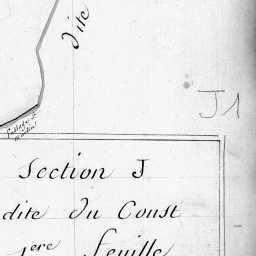 dite
J1
Section J
dite du Const
1ere feuille